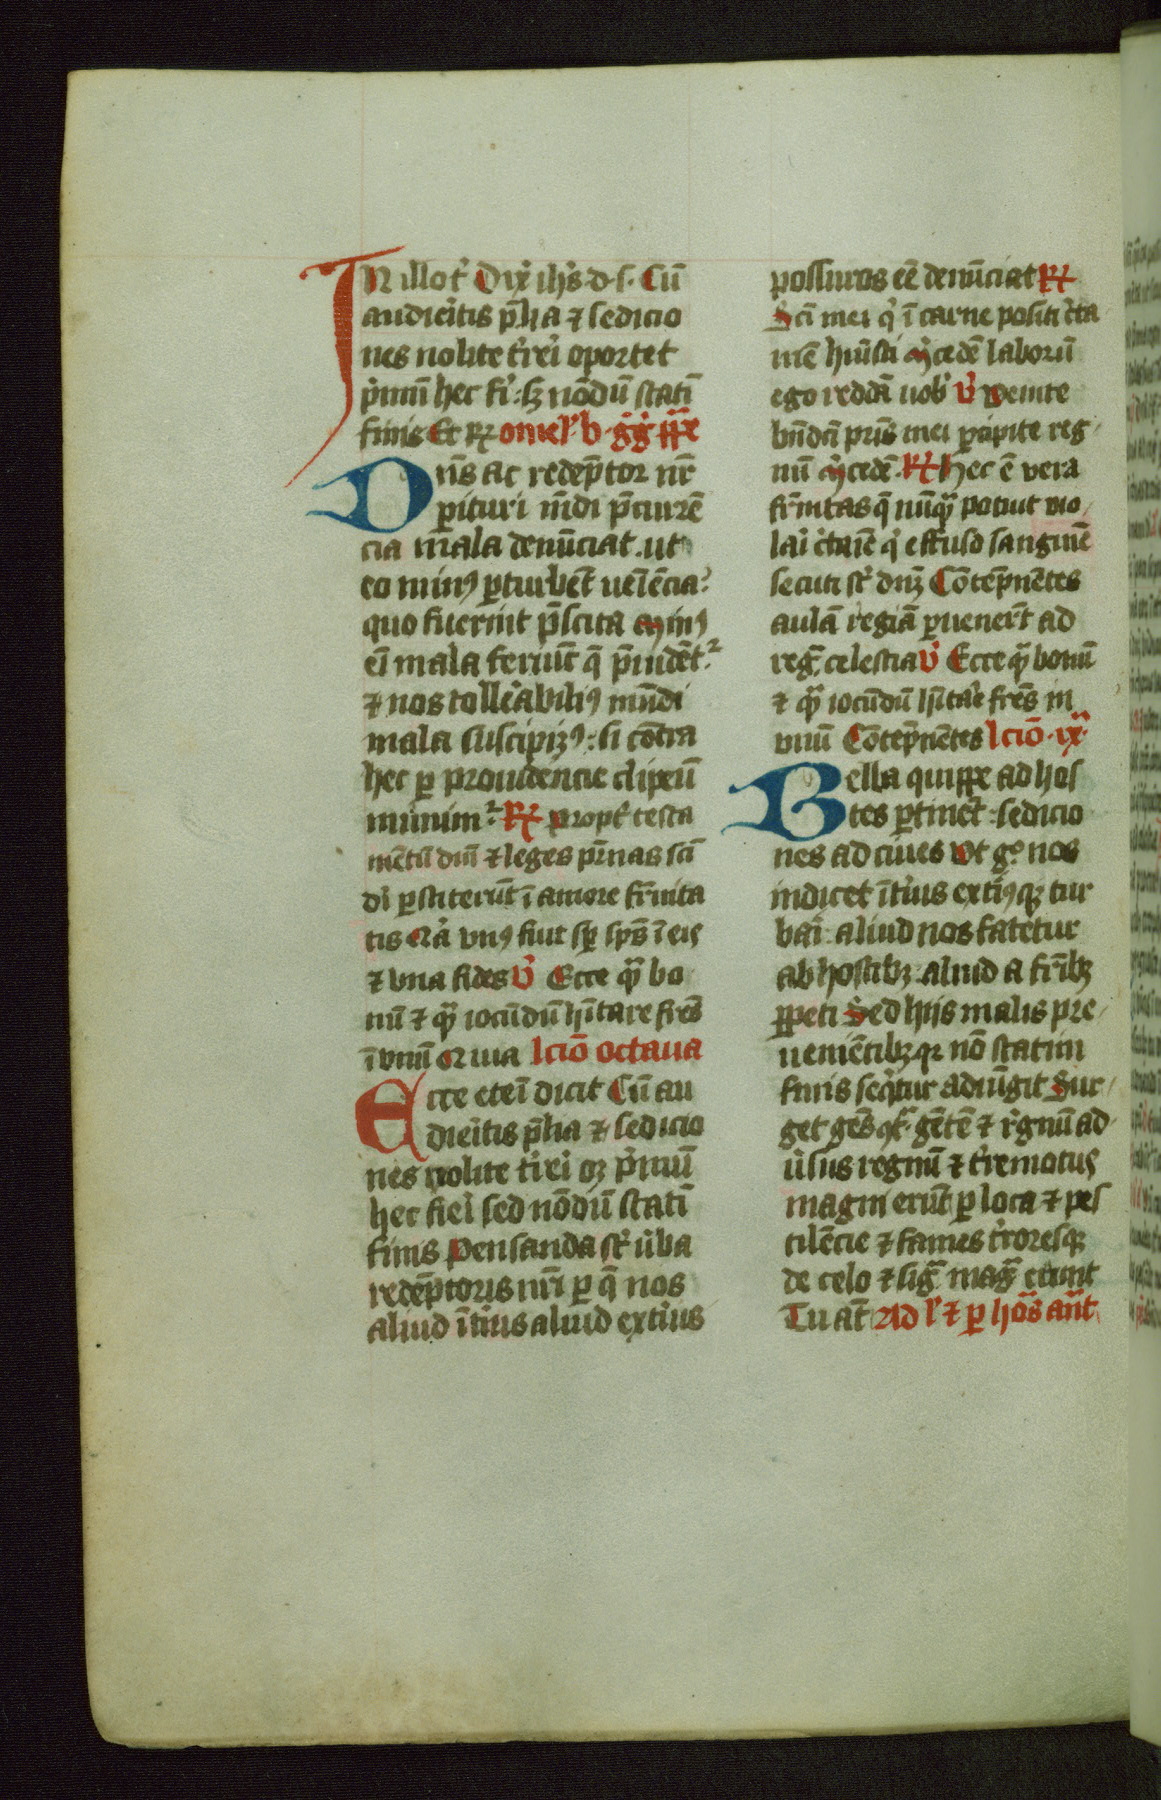 IN illo t̕ Dix̕ ihs̄ · d · s · Cū
audiei̕tis p̄lia ⁊ sedicio
nes nolite t̕rei̕ oportet
p̕mū hec fi̕ : sꝫ nōdū stati̅
finis Et Rꝝ omel̕ · b · gg̕ pp̄e
Dn̄s ac redēptor nr̄
ꝑituri mūdi p̄curre̅
cia mala denūciat . ut
eo minꝰ ꝑturbēt ueīēcia ?
quo fuerint p̄scita minꝰ
ei̅ mala feriūt q̄ p̄uidēt᷑
⁊ nos tolle̕abiliꝰ mūdi
mala suscipiꝫꝰ : si cōtra
hec ꝑ prouidencie clipeū
munim᷑ Rꝝ propt̕ testa
mētū dn̄i ⁊ leges pr̄nas sci̅
di̅ ꝑstiterūt ī amore fr̄nita
tis Q̕a vnꝰ fuit sꝑ sp̄s ī eis
⁊ una fides v̕ Ecce qͣ̄ bo
nū ⁊ qͣ̄ iocūdū hītare fr̄es
ī vnū Q̕ una lcīō octaua
Ecce etei̅ dicit Cū au
diei̕tis p̄lia ⁊ sedicio
nes nolite t̕rei̕ oꝫ p̕mū
hec fiei̕ sed nōdū stati̅
finis Pensanda st̕ u̕ba
redēptoris nr̄i ꝑ q̄ nos
aliud īt̕ius aliud ext̕ius
possuros eē denūciat Rꝝ
Sci̅ mei q̕ ī carne positi c̕ta
mē huīsti m̕cedē laborū
ego reddā uob̕ v̕ Venite
bn̄dci̅ pr̄is mei ꝑcipite reg
nū m̕cedē · Rꝝ Hec ē vera
fr̄nitas q̄ nūqͣ̄ potuit vio
lai̕ c̕tamē q̕ effuso sanguinē
secuti st̕ dn̄ꝫ Cōtēpnētes
aulā regiā ꝑuener̄t ad
regͣ̄ celestia v̕ Ecce qͣ̄ bonū
⁊ qͣ̄ iocūdū hītar̕e fr̄es in
vnū Cōtēpnētes lcīō · ix
Bella quippe ad hos
tes ꝑtinēt : sedicio
nes ad ciues Vt g̊ nos
indicet īt̕ius ext̕iꝰqꝫ tur
bai̕ : aliud nos fatetur
ab hostibꝫ : aliud a fr̄ibꝫ
ꝑpeti Sed hijs malis pre
ueniētibꝫ qꝛ nō statim
finis seq̕tur adiūgit Sur
get gēs 9tͣ gētē ⁊ r̕gnū ad
u̕sus regnū ⁊ t̕remotus
magni erūt ꝑ loca ⁊ pes
tilēcie ⁊ fames t̕roresqꝫ
de celo ⁊ sigͣ̄ magͣ̄ erunt
Tu at̄ Ad l̕ ⁊ ꝑ hōas ant̄